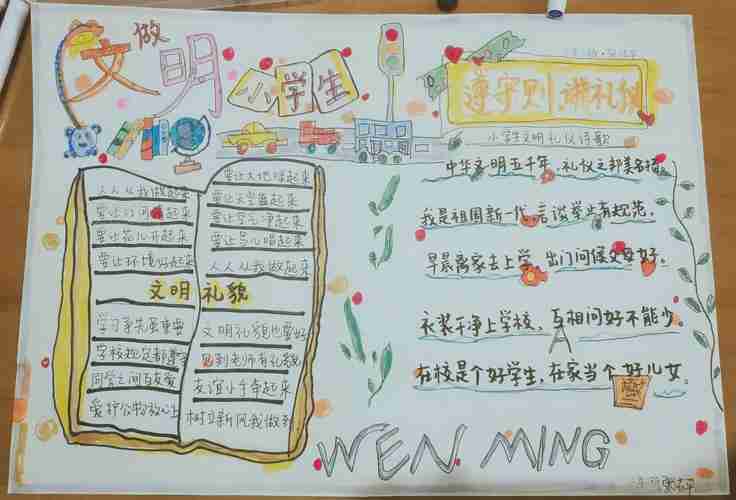 做
文明
小学生
遵守则 讲礼仪
小学生文明礼仪诗歌
人人从我做起来
要让花儿开起来
要让环境好起来
要让大地绿起来
要让天空蓝起来
要让空气净起来
要让鸟儿唱起来
人人从我做起来
文明礼貌
学习争先最重要
学校规定都遵守
同学之间互友爱
爱护公物放心上
文明礼貌也要好
见到老师有礼貌
友谊小手牵起来
树立新风我做到
中华文明五千年,礼仪之邦美名扬。
我是祖国新一代,言谈举止有规范。
早晨离家去上学,出门问候父母好。
衣装干净上学校,互相问好不能少。
在校是个好学生,在家当个好儿女。
WEN MING